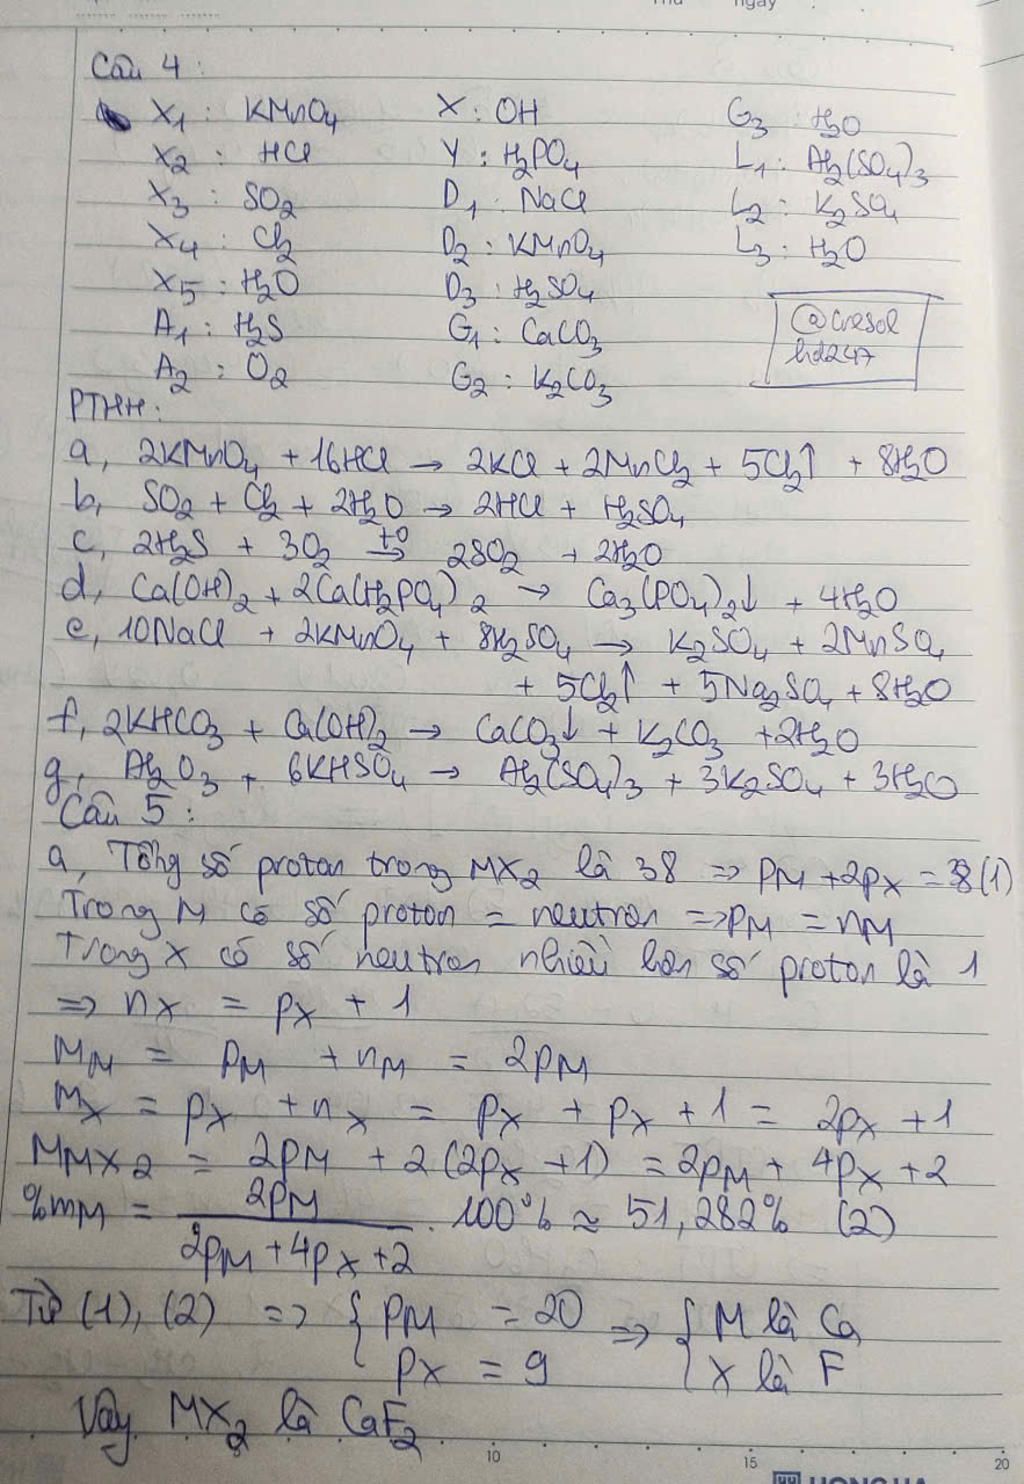 Câu 4:
X1 : KMnO4 X : OH G3 : H2O
X2 : HCl Y : H2PO4 L1 : Al2(SO4)3
X3 : SO2 D1 : NaCl L2 : K2SO4
X4 : Cl2 D2 : KMnO4 L3 : H2O
X5 : H2O D3 : H2SO4
A1 : H2S G1 : CaCO3 @cresol
A2 : O2 G2 : K2CO3 hd247
PTHH:
a, 2KMnO4 + 16HCl → 2KCl + 2MnCl2 + 5Cl2↑ + 8H2O
b, SO2 + Cl2 + 2H2O → 2HCl + H2SO4
c, 2H2S + 3O2 t0→ 2SO2 + 2H2O
d, Ca(OH)2 + 2Ca(H2PO4)2 → Ca3(PO4)2↓ + 4H2O
e, 10NaCl + 2KMnO4 + 8H2SO4 → K2SO4 + 2MnSO4
+ 5Cl2↑ + 5Na2SO4 + 8H2O
f, 2KHCO3 + Ca(OH)2 → CaCO3↓ + K2CO3 + 2H2O
g, Al2O3 + 6KHSO4 → Al2(SO4)3 + 3K2SO4 + 3H2O
Câu 5:
a, Tổng số proton trong MX2 là 38 => pM + 2pX = 38 (1)
Trong M có số proton = neutron => pM = nM
Trong X có số neutron nhiều hơn số proton là 1
=> nX = pX + 1
MM = pM + nM = 2pM
MX = pX + nX = pX + pX + 1 = 2pX + 1
MMX2 = 2pM + 2(2pX + 1) = 2pM + 4pX + 2
%mM = 2pM / 2pM + 4pX + 2 . 100% ≈ 51,282% (2)
Từ (1), (2) => { pM = 20 => { M là Ca
pX = 9 X là F
Vậy MX2 là CaF2
10 15 20